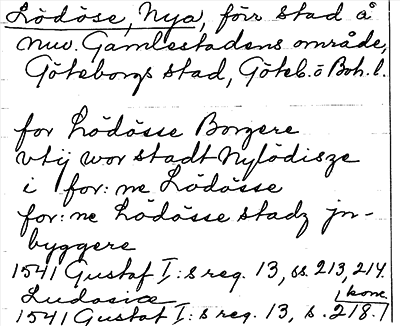 Lödöse, Nya, förr stad å
nuv. Gamlestadens område,
Göteborgs stad, Göteb. o Boh. l.
for Lödösse Borgere
vtij wor stadt Nylödisze
i for: ne Lödösse
for: ne Lödösse stadz jn-
byggere
1541 Gustaf I:s reg. 13, ss. 213, 214.
Ludosiæ
konc.
1541 Gustaf I:s reg. 13, s. 218.